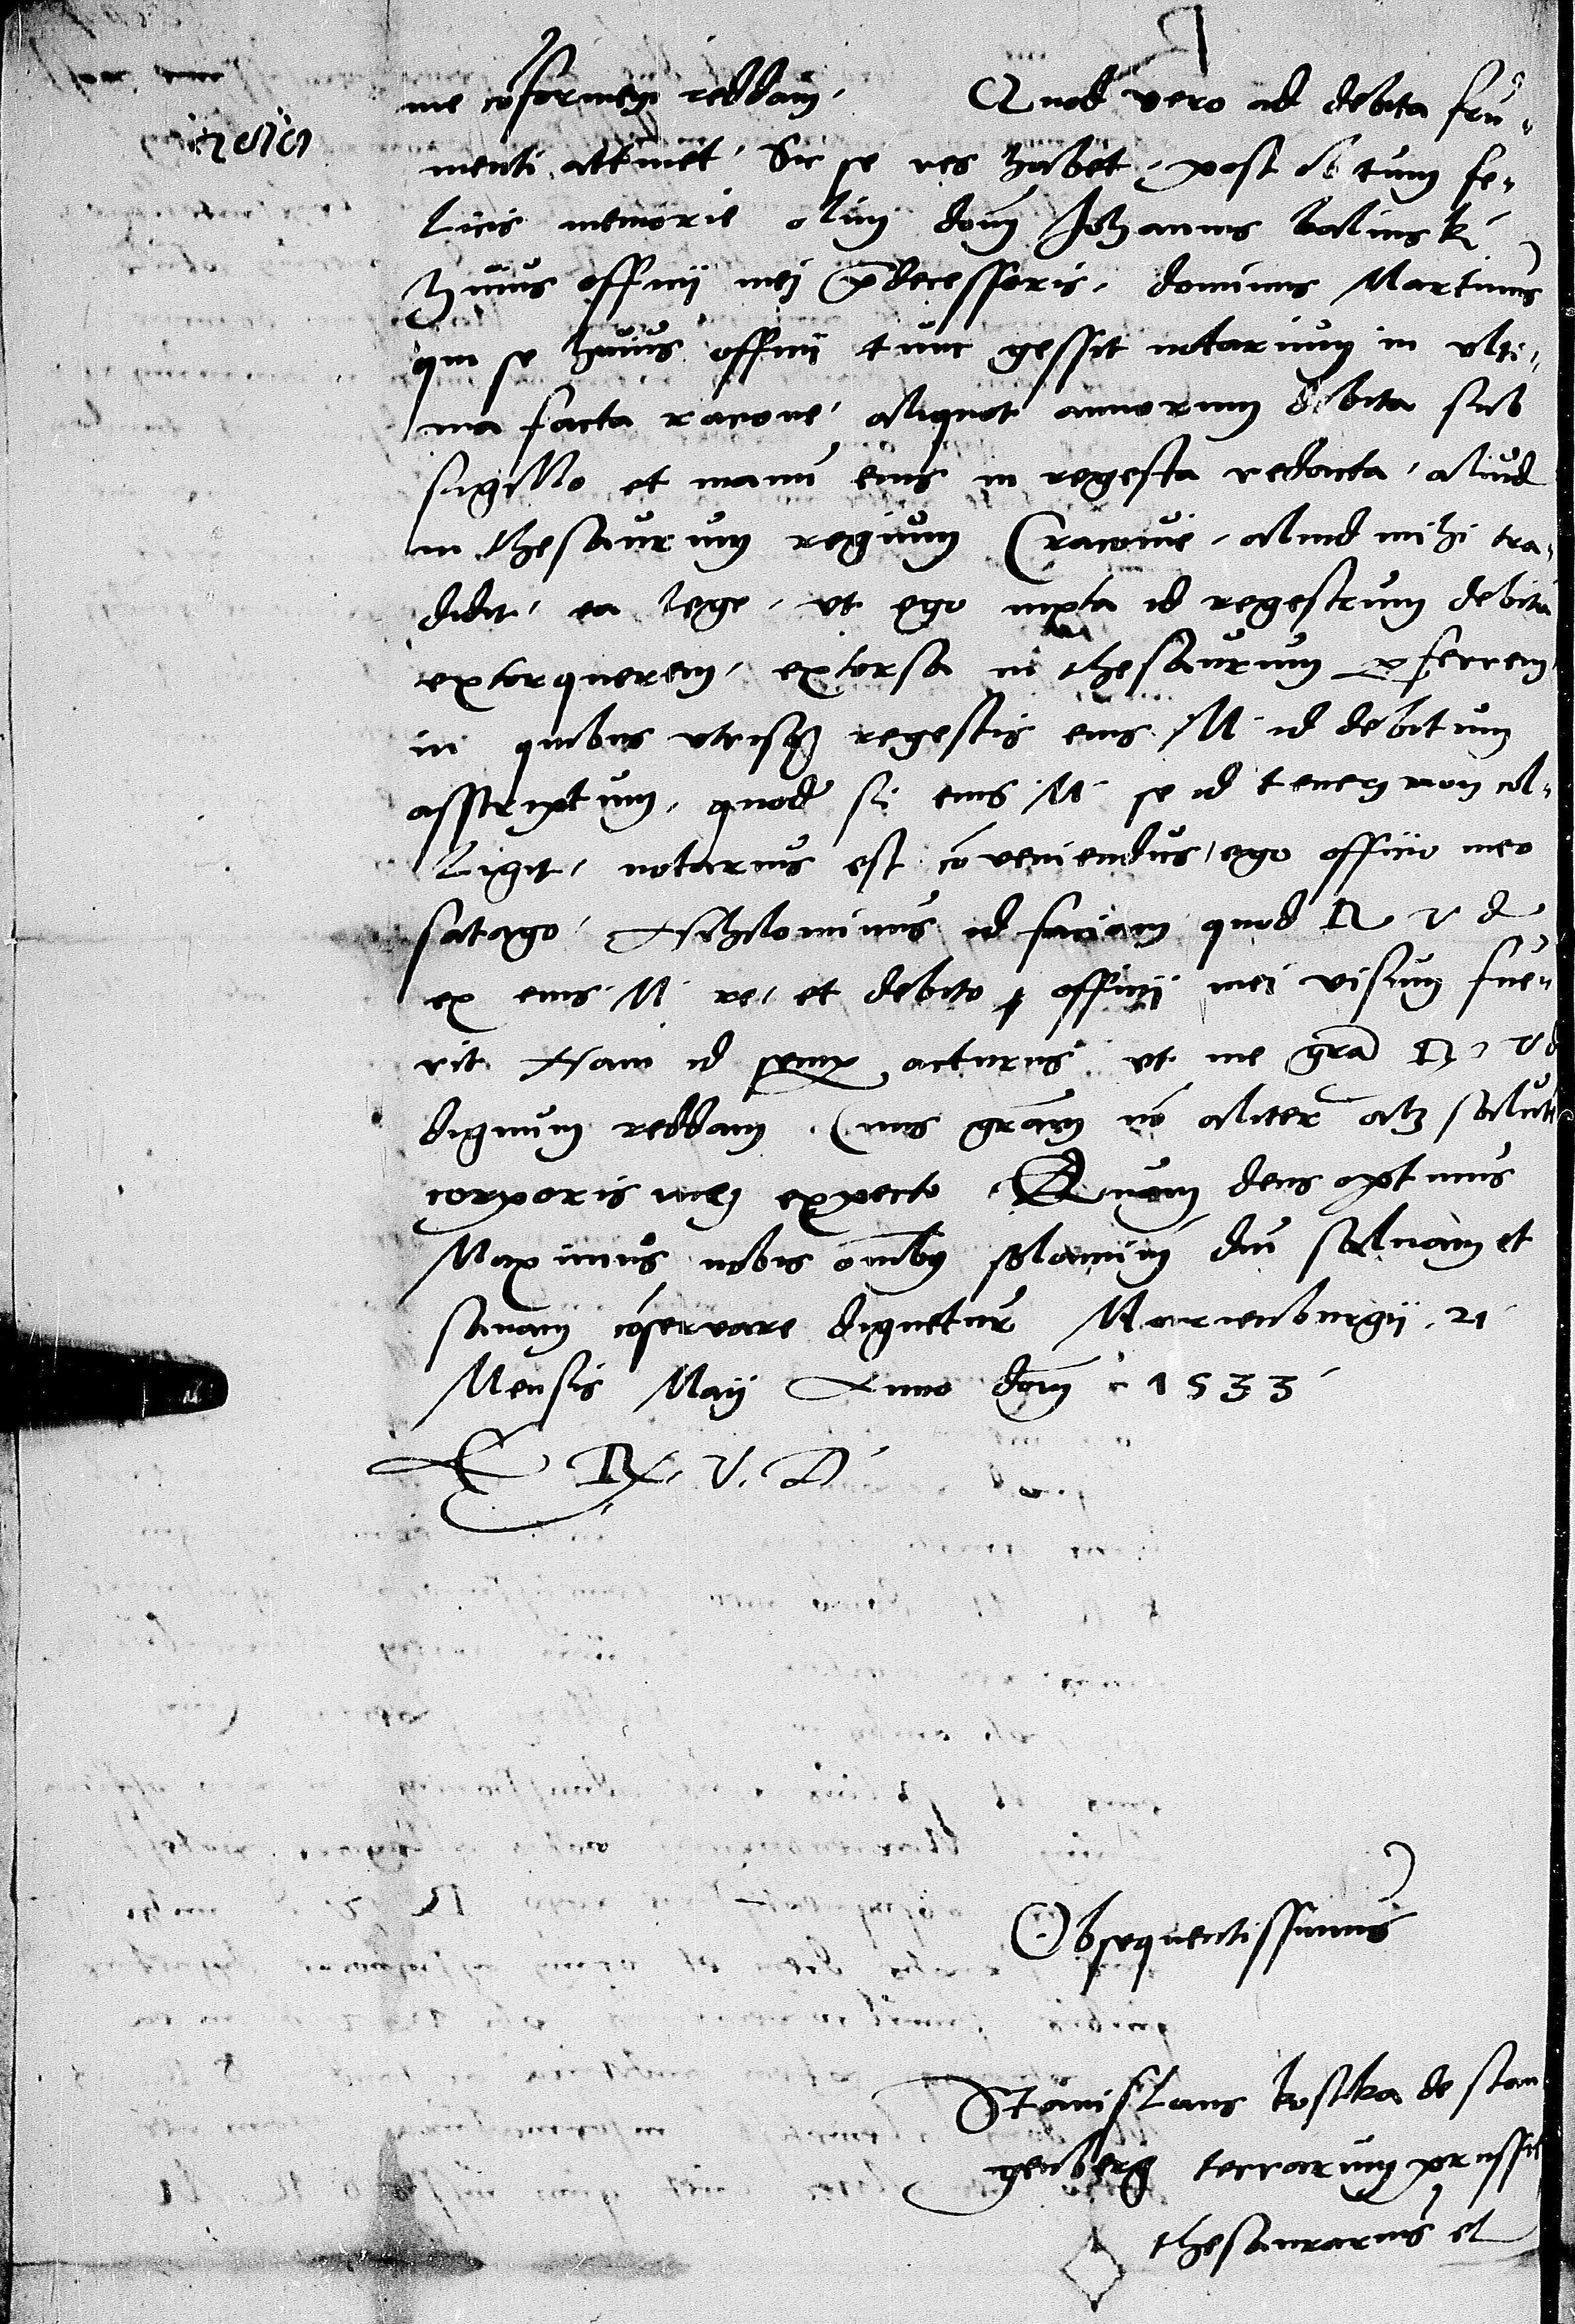 me cōformem reddam. Quod vero ad debita fru-
menti attinet, Sic se res habet, post obitum fe-
licis memorie olim dom̄ Johannis balinski
huius officii mei p̄decessoris, dominus Martinus
qui se huius officii tunc gessit notarium in ulti-
ma facta racione, aliquot annorum debita sub
sigillo et manu eius in regesta redacta, aliud
in thesaurum regium Cracovie, aliud mihi tra-
didit, ea lege, ut ego iuxta id regestrum debita
extorquerem, extorsa in thesaurum p̱ferrem,
in quibus utrisq regestis eius M id debitum
asscriptum, quod si eius M se id tenerj non col-
ligit, notarius est cōveniendus, ego officio meo
satago. Nihilominus id faciam quod R V d
ex eius M re, et debito officii mei visum fue-
rit Nam id semp acturus ut me gr̄a R V d
dignum reddam. Cuius gr̄am nō aliter atq salutē
corporis mej expecto. Quam deus optimus
Maximus nobis omībq dm̄ salvam et
sanam cōservare dignetur Marienburgii 21
Mensis Maij Anno dom̄ 1533
E R. V. D
Obsequentissimus
Stanislaus kostka de stan
genberg terrarum prussie
thesaurarius et